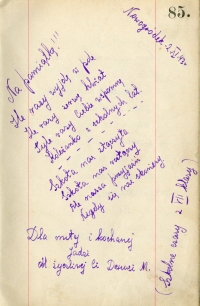 85.
Nowogródek
Na pamiątkę!!!
Ile razy wyjdę w pole
Ile razy
Tyle razy Ciebie wspomnę
Koleżanko z szkolnych lat.
Szkoła nas
Szkoła nas
Ale nasza przyjaźń
Nigdy się nie skończy
Dla miłej i kochanej
Jadzi
od życzliwej Ci Danusi M.
(Szkolne czasy z VII klasy)